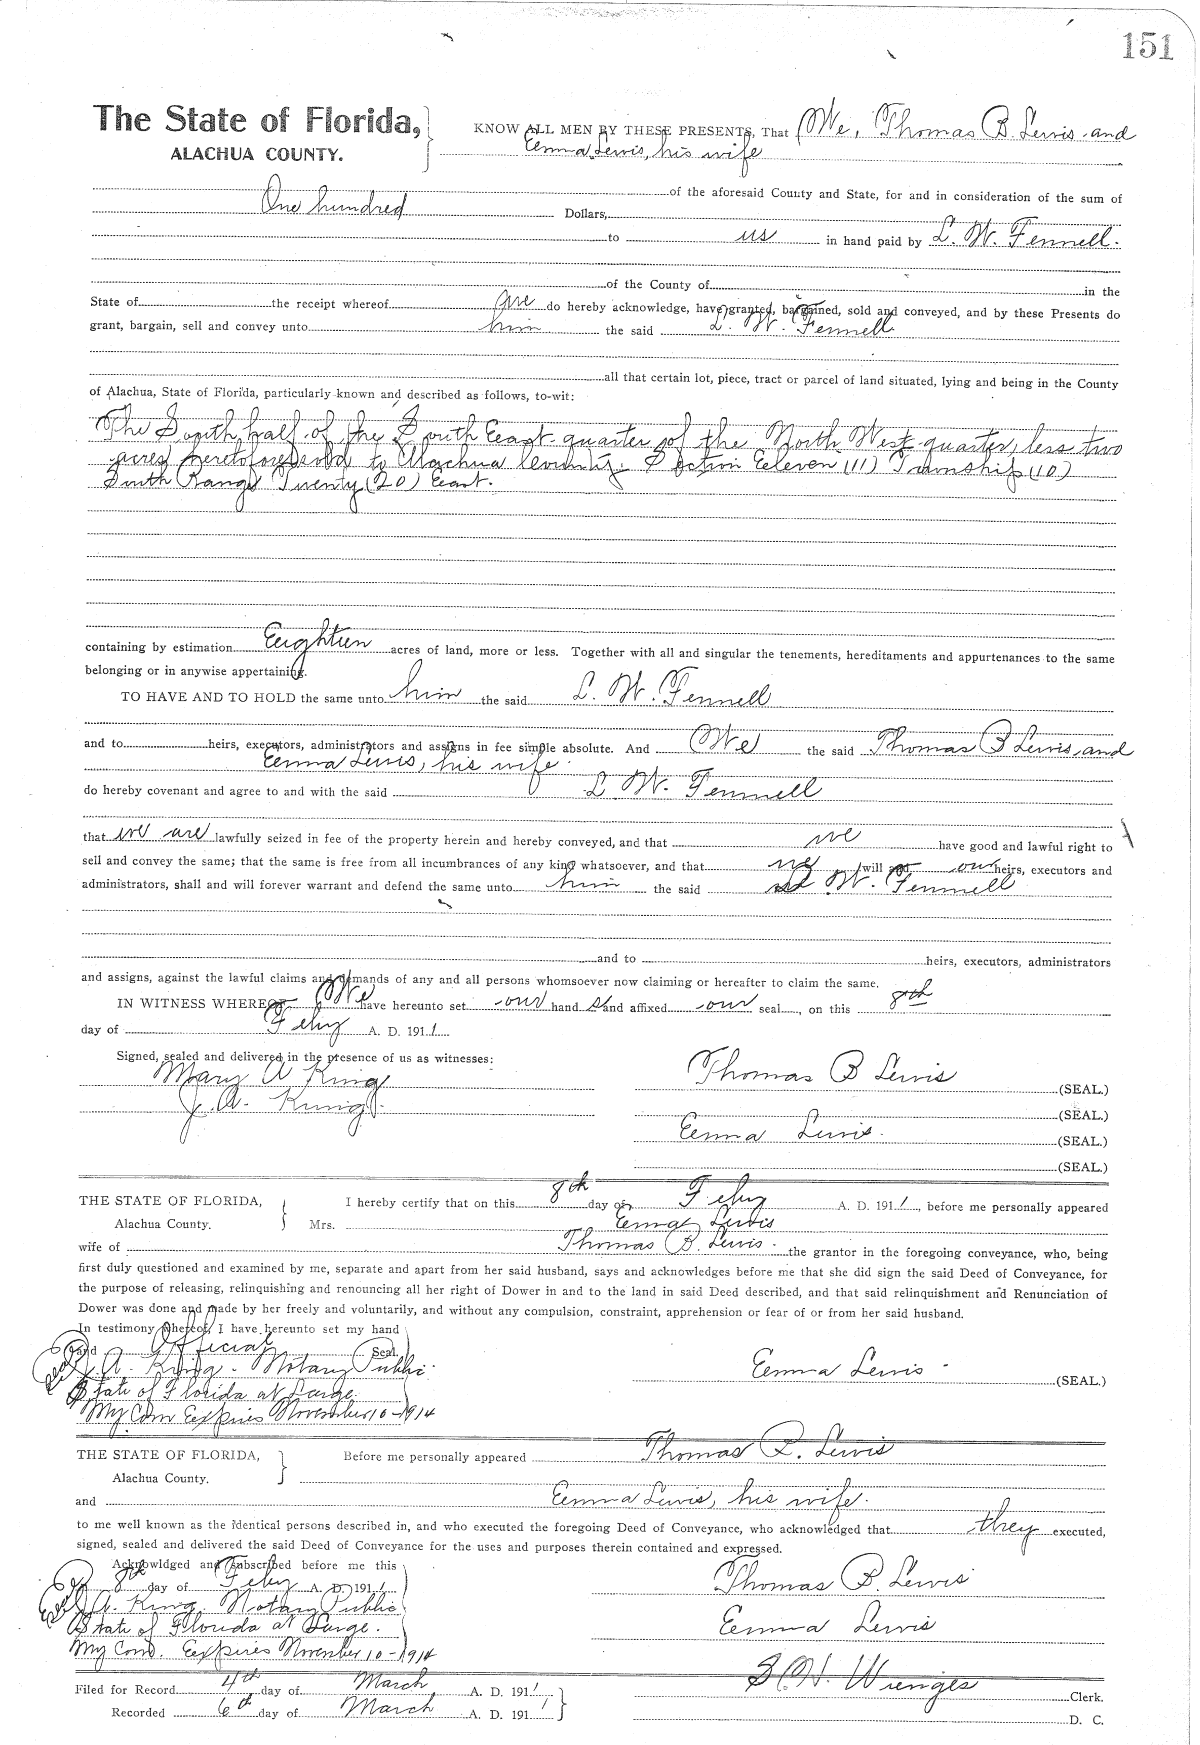 151
The State of Florida,
ALACHUA COUNTY.
KNOW ALL MEN BY THESE PRESENTS, That We, Thomas B Lewis and
Emma Lewis, his wife
of the aforesaid County and State, for and in consideration of the sum of
One hundred Dollars,
to us in hand paid by L. W. Fennell.
of the County of in the
State of the receipt whereof are do hereby acknowledge, have granted, bargained, sold and conveyed, and by these Presents do
grant, bargain, sell and convey unto him the said L. W. Fennell
all that certain lot, piece, tract or parcel of land situated, lying and being in the County
of Alachua, State of Florida, particularly known and described as follows, to-wit:
The South half of the South East quarter of the North West quarter, less two
acres heretofore deeded to Alachua County. Section Eleven (11) Township (10)
South Range Twenty (20) East.
containing by estimation Eighteen acres of land, more or less. Together with all and singular the tenements, hereditaments and appurtenances to the same
belonging or in anywise appertaining.
TO HAVE AND TO HOLD the same unto him the said L. W. Fennell
and to heirs, executors, administrators and assigns in fee simple absolute. And We the said Thomas B Lewis, and
Emma Lewis, his wife.
do hereby covenant and agree to and with the said L W. Fennell
that we are lawfully seized in fee of the property herein and hereby conveyed, and that we have good and lawful right to
sell and convey the same; that the same is free from all incumbrances of any king whatsoever, and that we will and our heirs, executors and
administrators, shall and will forever warrant and defend the same unto him the said W. Fennell
and to heirs, executors, administrators
and assigns, against the lawful claims and demands of any and all persons whomsoever now claiming or hereafter to claim the same.
IN WITNESS WHEREOF We have hereunto set our hand s and affixed our seal , on this 8th
day of Feby A. D. 1911.
Signed, sealed and delivered in the presence of us as witnesses:
Mary A King
J. A. King.
Thomas B Lewis (SEAL.)
(SEAL.)
Emma Lewis. (SEAL.)
(SEAL.)
THE STATE OF FLORIDA,
Alachua County.
I hereby certify that on this 8th day of Feby A. D. 1911, before me personally appeared
Mrs. Emma Lewis
wife of Thomas B. Lewis. the grantor in the foregoing conveyance, who, being
first duly questioned and examined by me, separate and apart from her said husband, says and acknowledges before me that she did sign the said Deed of Conveyance, for
the purpose of releasing, relinquishing and renouncing all her right of Dower in and to the land in said Deed described, and that said relinquishment and Renunciation of
Dower was done and made by her freely and voluntarily, and without any compulsion, constraint, apprehension or fear of or from her said husband.
In testimony whereof, I have hereunto set my hand
and Official Seal.
J. A. King. Notary Public.
State of Florida at Large.
My Com Expires November 10-1914
Emma Lewis. (SEAL.)
THE STATE OF FLORIDA,
Alachua County.
Before me personally appeared Thomas B. Lewis
and Emma Lewis, his wife.
to me well known as the identical persons described in, and who executed the foregoing Deed of Conveyance, who acknowledged that they executed,
signed, sealed and delivered the said Deed of Conveyance for the uses and purposes therein contained and expressed.
Acknowldged and Subscribed before me this
8th day of Feby A. D. 1911
J. A. King. Notary Public
State of Florida at Large.
My Com. Expires November 10-1914
Thomas B. Lewis
Emma Lewis
Filed for Record 4th day of March A. D. 1911
Recorded 6th day of March A. D. 1911
S. H. Wienges Clerk.
D. C.